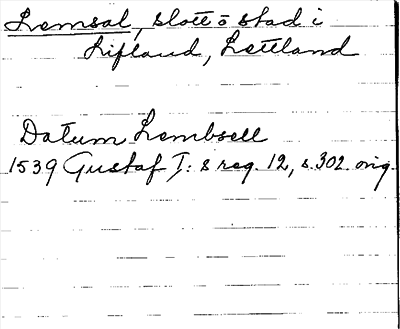 Lemsal, slott o stad i
Lifland, Lettland
Datum Lembsell
1539 Gustaf I:s reg. 12, s. 302 orig.